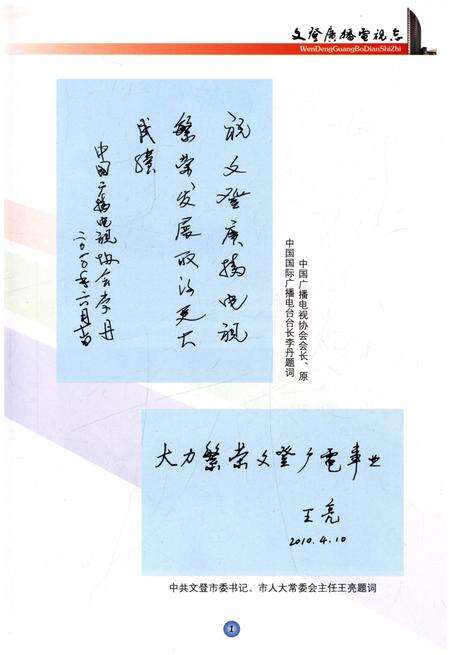 文登廣播電視志
WenDengGuangBoDianShiZhi
祝文登广播电视
繁荣发展取得更大
成绩
中国广播电视协会李丹
二〇一〇年六月
中国广播电视协会会长、原
中国国际广播电台台长李丹题词
大力繁荣文登广電事业
王亮
2010.4.10
中共文登市委书记、市人大常委会主任王亮题词
1